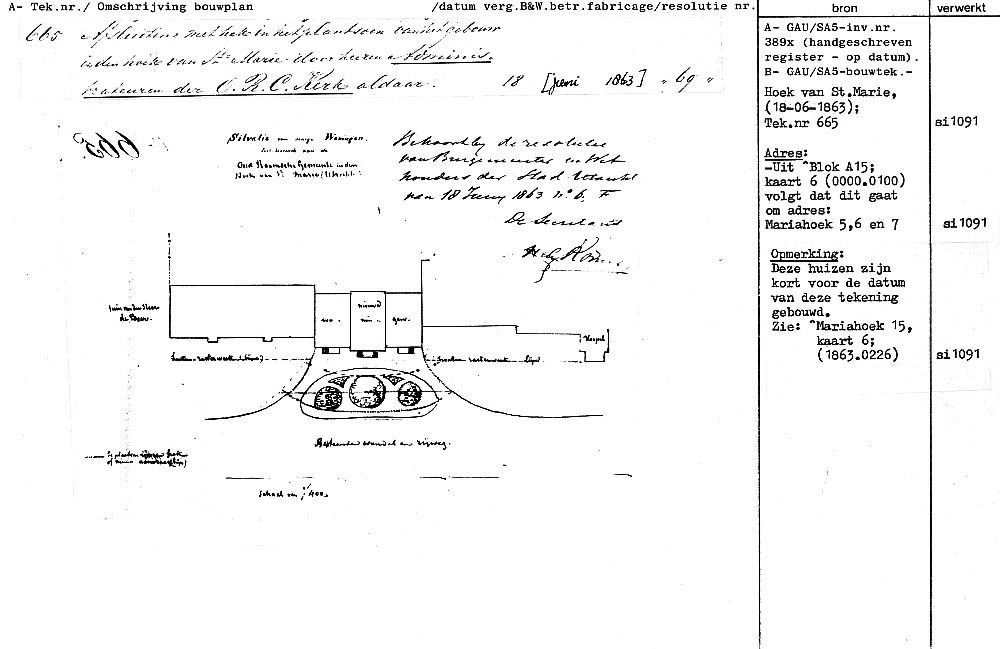 A- Tek.nr./ Omschrijving bouwplan /datum verg.B&W.betr.fabricage/resolutie nr. bron verwerkt
665 Afsluiting met hek in het plantsoen van het gebouw
in den hoek van St. Marie door heeren Adminis.
trateuren der O. R. C. Kerk aldaar. 18 [juni 1863] " 69 "
665.
Situatie van eenige Woningen.
aan de
Oud Roomsche Gemeente in den
Hoek van St. Marie (Utrecht)
Behoort bij de resolutie
van Burgemeester en Wet
houders der Stad Utrecht
van 18 Juny 1863 no. 6. F
De Secretaris
tuin van den Heer
de Beer.
nieuwe
wo- nin- gen.
Kapel
Bestaande wandel en rijweg.
Schaal van 1/400.
A- GAU/SA5-inv.nr.
389x (handgeschreven
register - op datum).
B- GAU/SA5-bouwtek.-
Hoek van St.Marie,
(18-06-1863);
Tek.nr 665 si1091
Adres:
-Uit ^Blok A15;
kaart 6 (0000.0100)
volgt dat dit gaat
om adres:
Mariahoek 5,6 en 7 si1091
Opmerking:
Deze huizen zijn
kort voor de datum
van deze tekening
gebouwd.
Zie: ^Mariahoek 15,
kaart 6;
(1863.0226) si1091